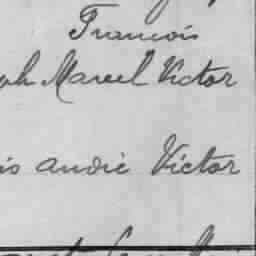 François
ph Marcel Victor
is André Victor